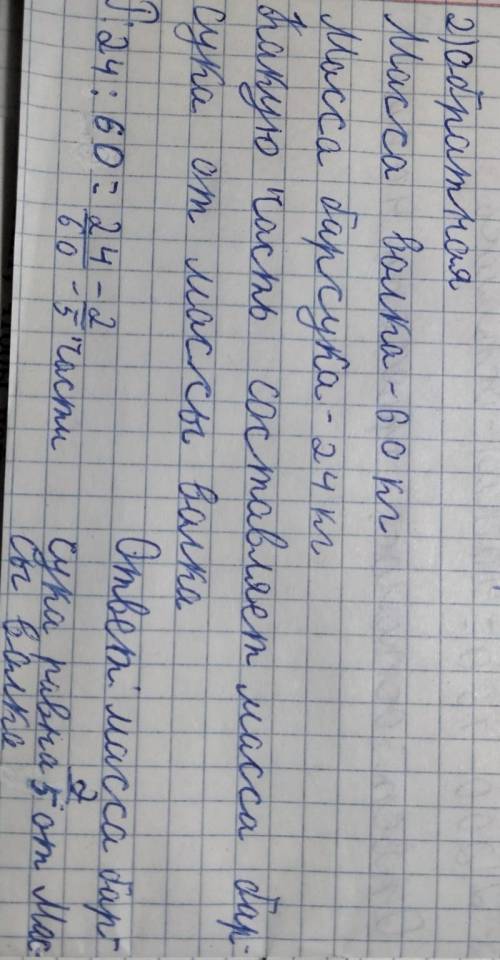 2) Обратная
Масса волка - 60 кг
Масса барсука - 24 кг
Какую часть составляет масса бар-
сука от массы волка
1. 24 : 60 = 24/60 = 2/5 части
Ответ: масса бар-
сука равна 2/5 от мас-
сы волка